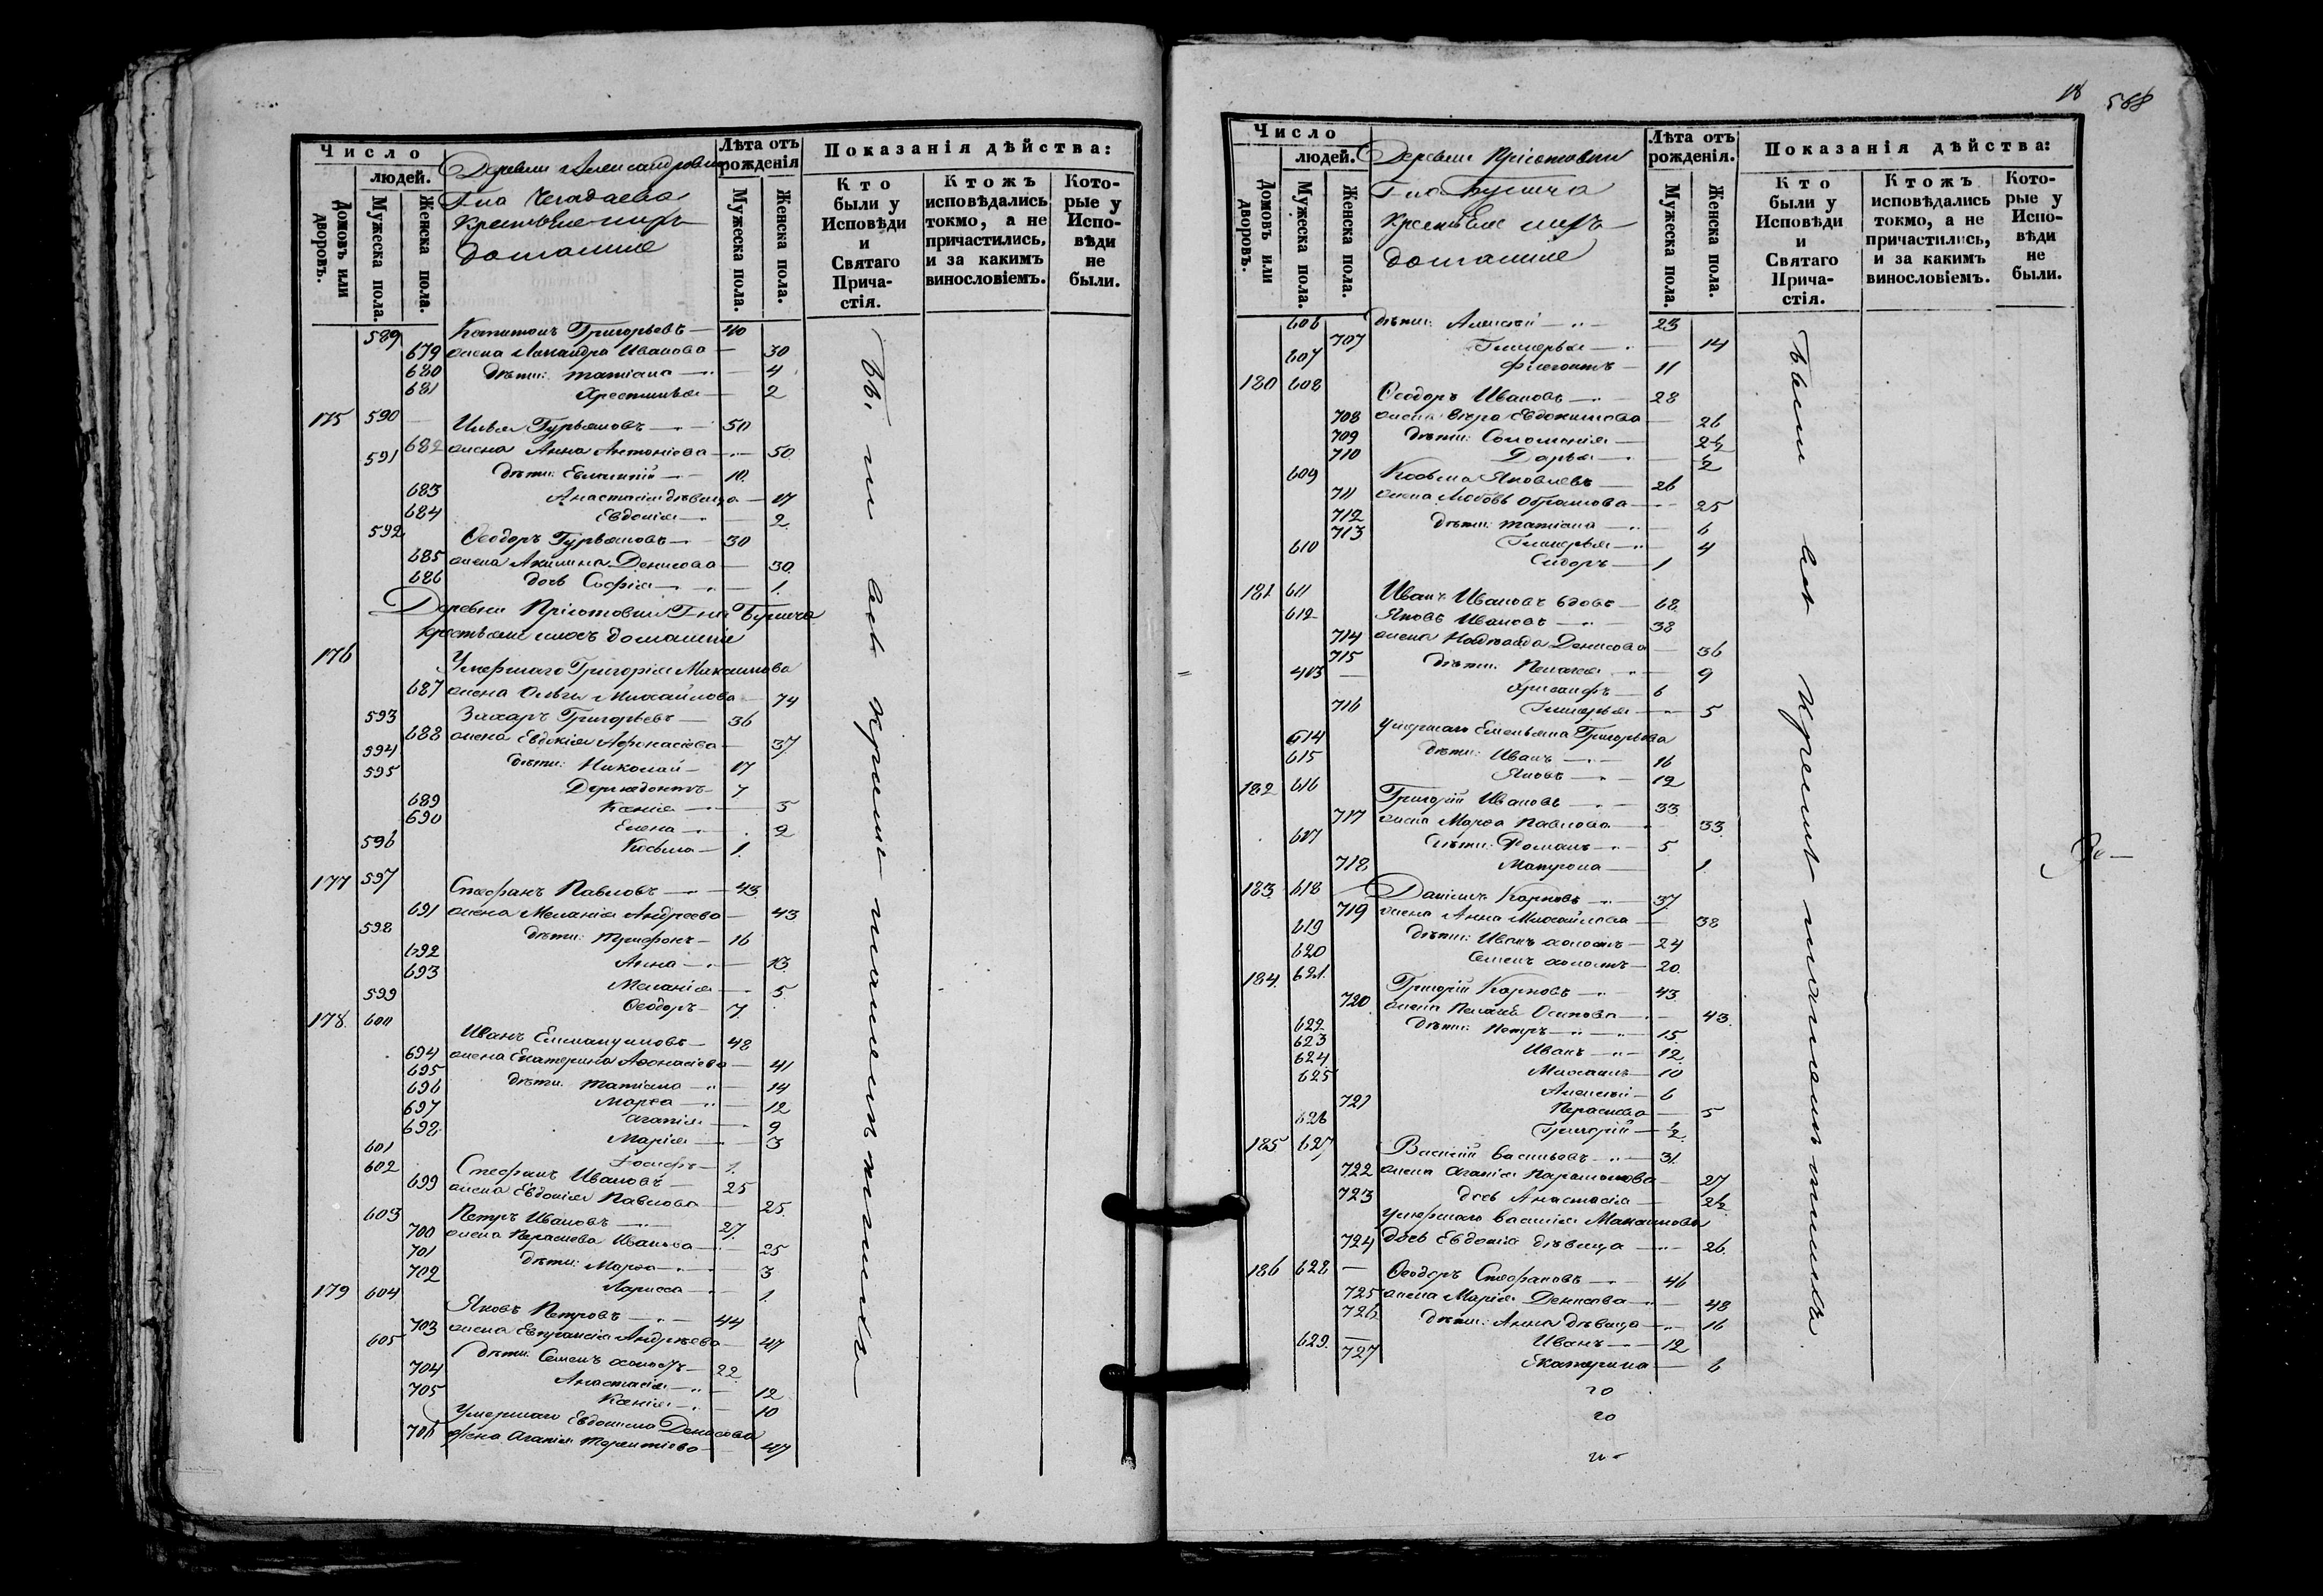 Число
людей.
Домовъ или дворовъ.
Мужеска пола.
Женска пола.
Деревни Александровки
Г-на Чегадаева
Крестьяне и ихъ
домашніе
Лѣта отъ рожденія
Мужеска пола.
Женска пола.
Показанія дѣйства:
Кто были у Исповѣди и Святаго Причастія.
Ктожъ исповѣдались токмо, а не причастились, и за какимъ винословіемъ.
Которые у Исповѣди не были.
589 Капитонъ Григорьевъ 40
679 жена Александра Иванова 30
680 дѣти: Татіана 4
681 Христинья 2
175 590 Илья Гурьяновъ 50
682 жена Анна Антоніева 50
591 дѣти: Евлампій 10
683 Анастасія дѣвица 17
684 Евдокія 2
592 Ѳеодоръ Гурьяновъ 30
685 жена Акилина Денисова 30
686 дочь Софія 1
Деревни Пріютовки Г-на
крестьяне и ихъ домашніе
176 Умершаго Григорія Максимова
687 жена Ольга Михайлова 74
593 Захаръ Григорьевъ 36
688 жена Евдокія Афонасіева 37
594 дѣти: Николай 17
595 7
689 Ксенія 5
690 Елена 2
596 Косьма 1
177 597 Стефанъ Павловъ 43
691 жена Меланія Андреева 43
598 дѣти: Трифонъ 16
692 Анна 13
693 Меланія 5
599 Ѳеодоръ 7
178 600 Иванъ Еммануиловъ 48
694 жена Екатерина Афонасіева 41
695 дѣти: Татіана 14
696 Марѳа 12
697 Агапія 9
698 Марія 3
601 Іосифъ 1
602 Стефанъ Ивановъ 25
699 жена Евдокія Павлова 25
603 Петръ Ивановъ 27
700 жена Параскева Иванова 25
701 дѣти: Марѳа 3
702 Лариса 1
179 604 Яковъ Петровъ 44
703 жена Евпраксія Андрѣева 47
605 дѣти: Семенъ холостъ 22
704 Анастасія 12
705 Ксенія 10
Умершаго Евдокима Денисова
706 жена Агапія Терентіева 47
18 588
Число
людей.
Домовъ или дворовъ.
Мужеска пола.
Женска пола.
Деревни Пріютовки
Г-на
крестьяне и ихъ
домашніе
Лѣта отъ рожденія.
Мужеска пола.
Женска пола.
Показанія дѣйства:
Кто были у Исповѣди и Святаго Причастія.
Ктожъ исповѣдались токмо, а не причастились, и за какимъ винословіемъ.
Которые у Исповѣди не были.
606 дѣти: Алексѣй 23
707 Гликерья 14
607 Филагонтъ 11
180 608 Ѳеодоръ Ивановъ 28
708 жена Вѣра Евдокимова 26
709 дѣти: Соломонія 2½
710 Дарья ½
609 Косьма Яковлевъ 26
711 жена Любовь Абрамова 25
712 дѣти: Татіана 6
713 Гликерья 4
610 Сидоръ 1
181 611 Иванъ Ивановъ вдовъ 68
612 Яковъ Ивановъ 38
714 жена Надежда Денисова 36
715 дѣти: Пелагея 9
413 Хрисанфъ 6
716 Гликерья 5
Умершаго Емельяна Григорьева
614 дѣти: Иванъ 16
615 Яковъ 12
182 616 Григорій Ивановъ 33
717 жена Марѳа Павлова 33
617 дѣти: Романъ 5
718 Матрона 1
183 618 Даніилъ Карповъ 37
719 жена Анна Михайлова 38
619 дѣти: Иванъ холостъ 24
620 Семенъ холостъ 20
184 621 Григорій Карповъ 43
720 жена Пелагія Осипова 43
622 дѣти: Петръ 15
623 Иванъ 12
624 Михаилъ 10
625 Алексѣй 6
721 Параскева 5
626 Григорій ½
185 627 Василій Васильевъ 31
722 жена Агапія Парамонова 27
723 дочь Анастасія 2½
Умершаго Василія Максимова
724 дочь Евдокія дѣвица 26
186 628 Ѳеодоръ Стефановъ 46
725 жена Марія Денисова 48
726 дѣти: Анна дѣвица 16
629 Иванъ 12
727 Екатерина 6